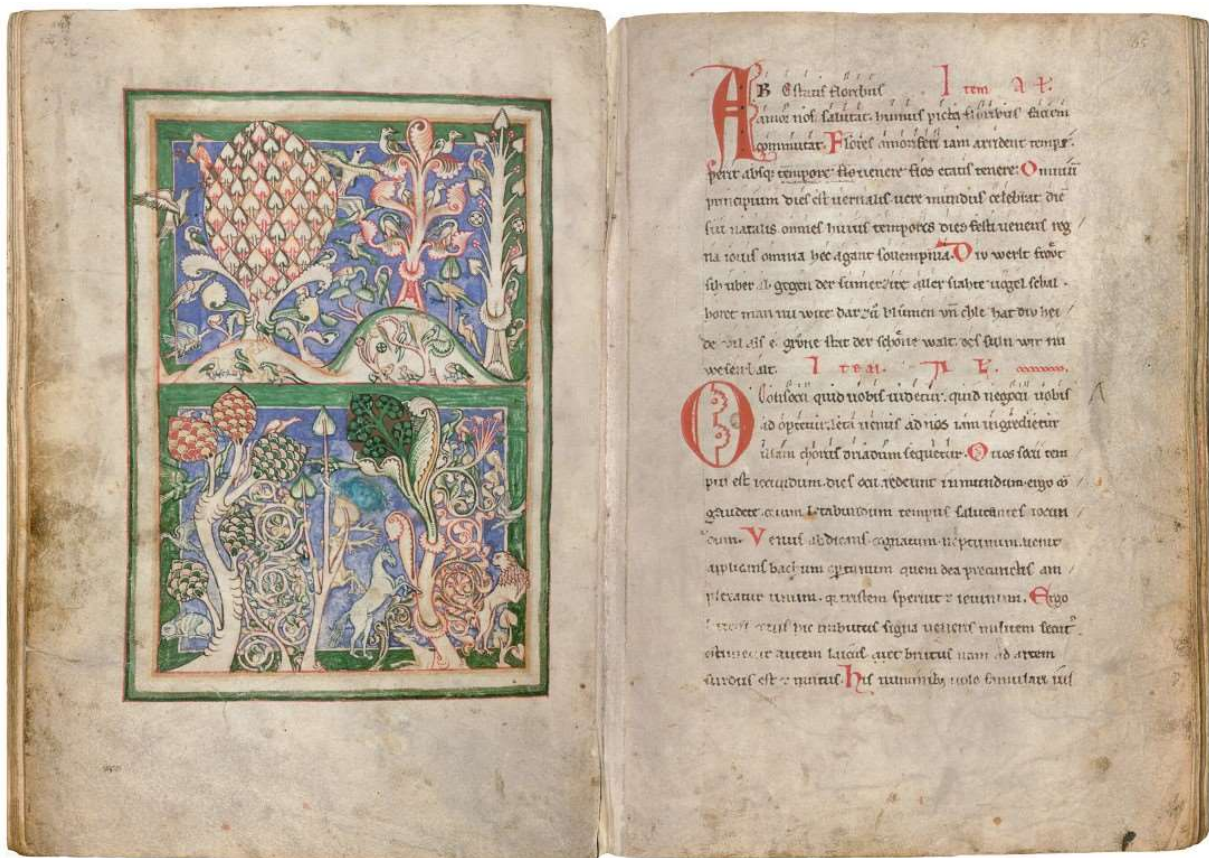 AB Estatis floribus Item Al.
amor nos salutat. humus picta floribus faciem
commutat. Flores amoriferi iam arrident tempori.
perit absq; tempore flos uenere flos etatis tenere. Omniū
principium dies est uernalis uere mundus celebrat diē
sui natalis omnes huius temporis dies festi ueneris reg
na iouis omnia hec agant sollempnia. Div werlt frovt
sih uber al gegen der sumerzite aller slahte uogel schal.
horet man nu wite dar zů blůmen vñ chle hat div hei
de vil als e. grůne stat der schône walt. des suln wir nu
wesen balt. Item Al.
O Consocii quid uobis uidetur. quid negocii nobis
ad optetur. leta uenus ad nos iam ingredietur
illam chorus driadum sequetur. O uos socii tem
pus est iocundum. dies ocii redeunt in mundum. ergo cō
gaudete. letabundum tempus salutantes iocun
dum. Venus abdicans cognatum neptunum. uenit
applicans bachum optunum quem dea pre cunctis am
plexatur unum. q; tristem spernit ⁊ ieiunum. Ergo
cetus hic imbutus signa ueneris militem secut'
autem laicus brutus nam ad artem
surdus est ⁊ mutus. His numinibꝫ uolo famulari ius